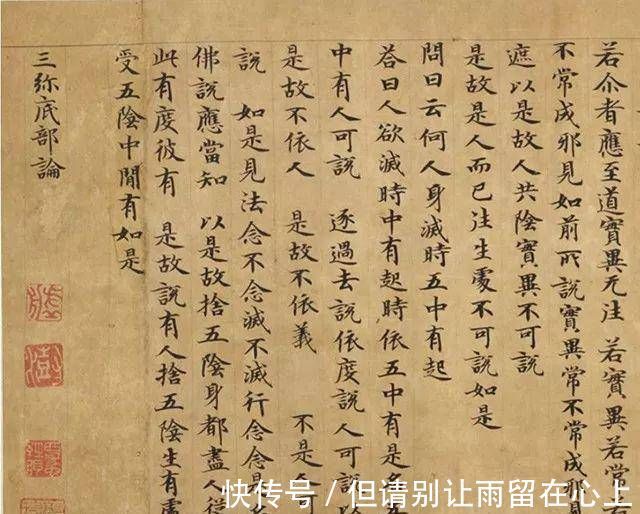 若尒者應至道實異无注 若實異若常
不常成邪見如前所說實異常不常成邪
遮以是故人共陰實異不可說
是故是人而已注生處不可說如是
問曰云何人身滅時五中有起
荅曰人欲滅時中有起時依五中有是
中有人可說 逐過去說依度說人可說
是故不依人 是故不依義 不是人
說 如是見法念不念滅不滅行念念
佛說應當知 以是故捨五陰身都盡人
此有度彼有 是故說有人捨五陰生有
受五陰中間有如是
三弥底部論
快传号 / 但请别让雨留在心上